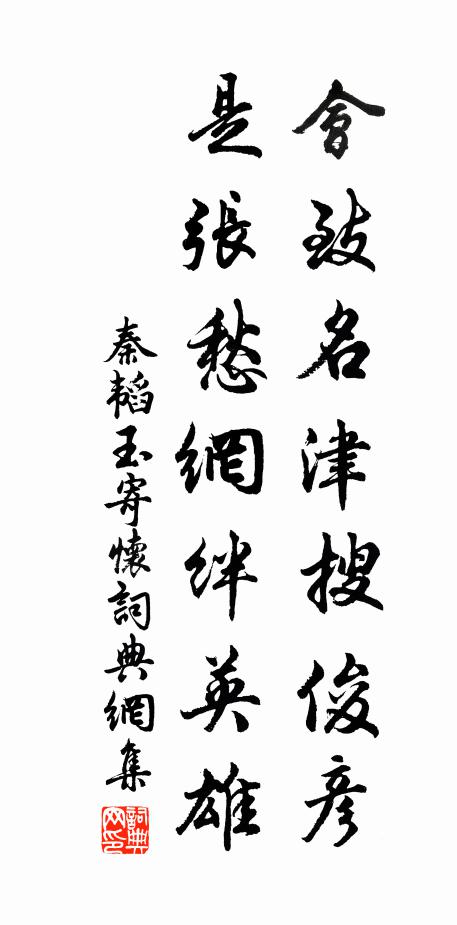 會致名津搜俊彥
是張愁網絆英雄
秦韜玉寄懷詞典網集
詞典网印